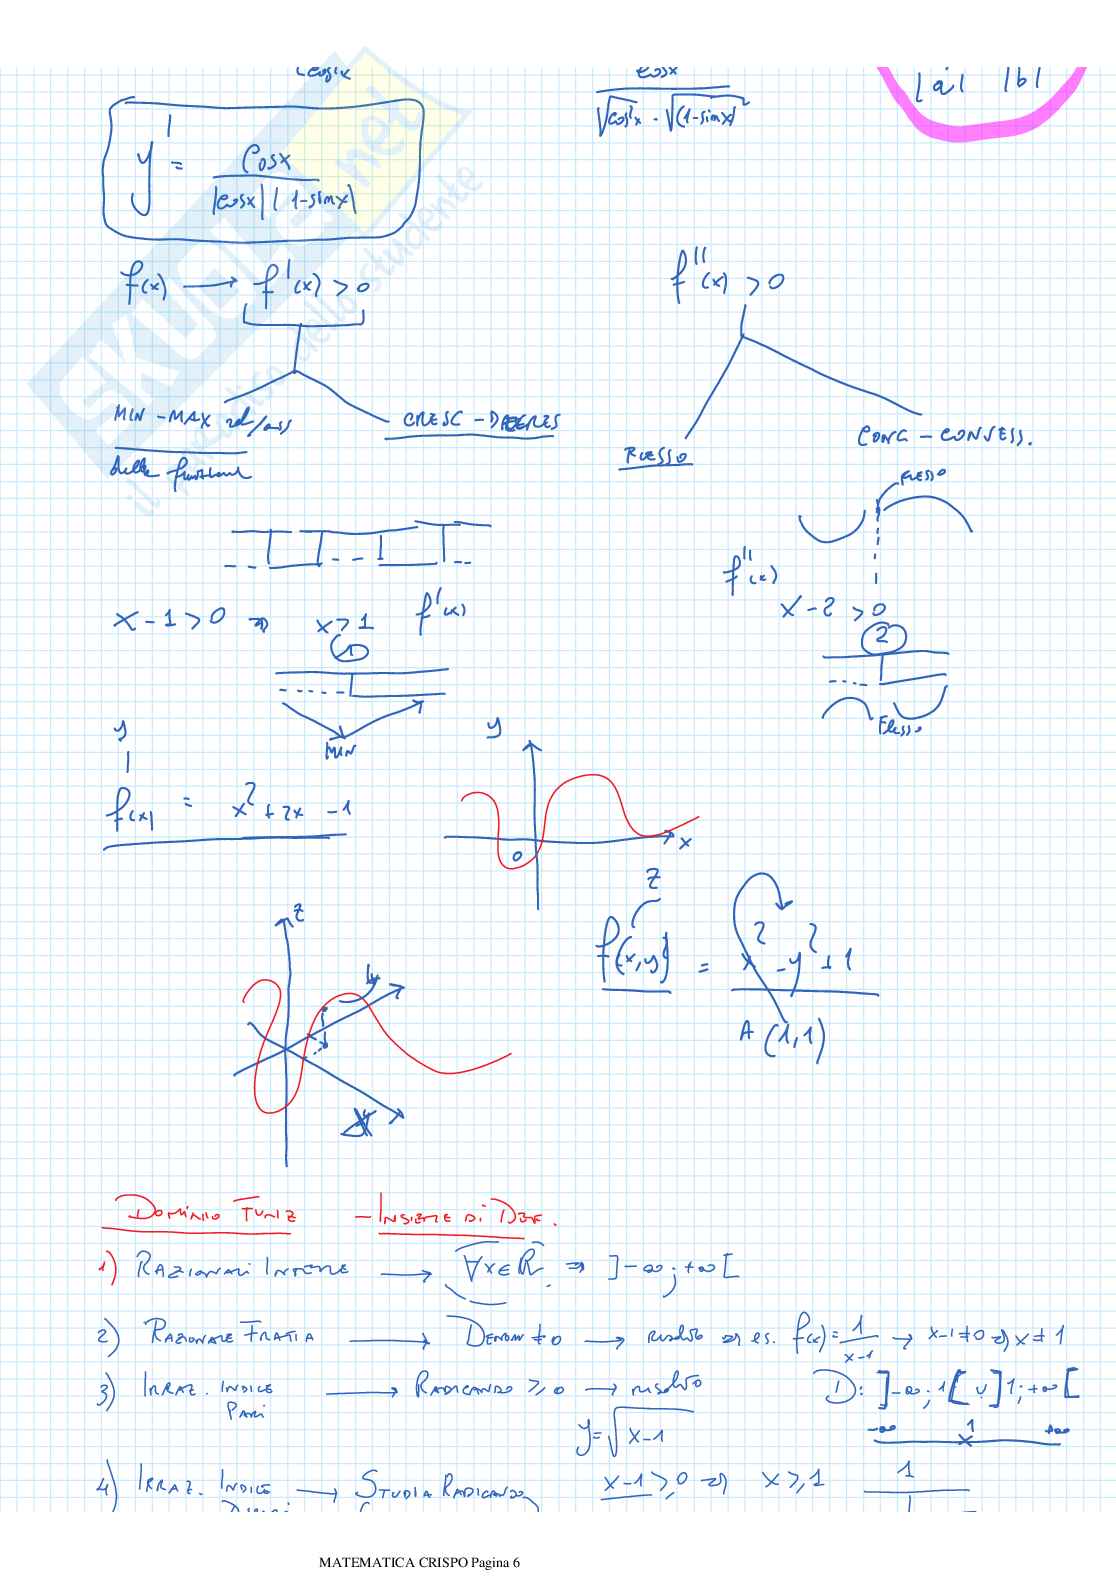 cosx
|a| |b|
√cos²x · √(1-sinx)²
y' = cosx / |cosx| |1-sinx|
f(x) → f'(x) > 0
f''(x) > 0
MIN - MAX rel/ass
della funzione
CRESC - DECRES
FLESSO
CONC - CONVESS.
FLESSO
f''(x)
x - 1 > 0 ⇒ x > 1 f'(x)
x - 2 > 0
1
2
MIN
Flesso
y
f(x) = x² + 2x - 1
y
x
0
z
f(x,y) = x² - y² + 1
A (1,1)
z
y
x
DOMINIO FUNZ - INSIEME DI DEF.
1) RAZIONALI INTERE → ∀x∈R ⇒ ]-∞; +∞[
2) RAZIONALE FRATTA → DENOM ≠ 0 → risolvo ⇒ es. f(x) = 1/x-1 → x-1≠0 ⇒ x ≠ 1
3) IRRAZ. INDICE PARI → RADICANDO ≥ 0 → risolvo
D: ]-∞; 1[ ∪ ]1; +∞[
y = √x-1
-∞ 1 +∞
x
4) IRRAZ. INDICE → STUDIA RADICANDO
x-1 ≥ 0 ⇒ x ≥ 1
1
MATEMATICA CRISPO Pagina 6
SKUOLA.net
il paradiso dello studente